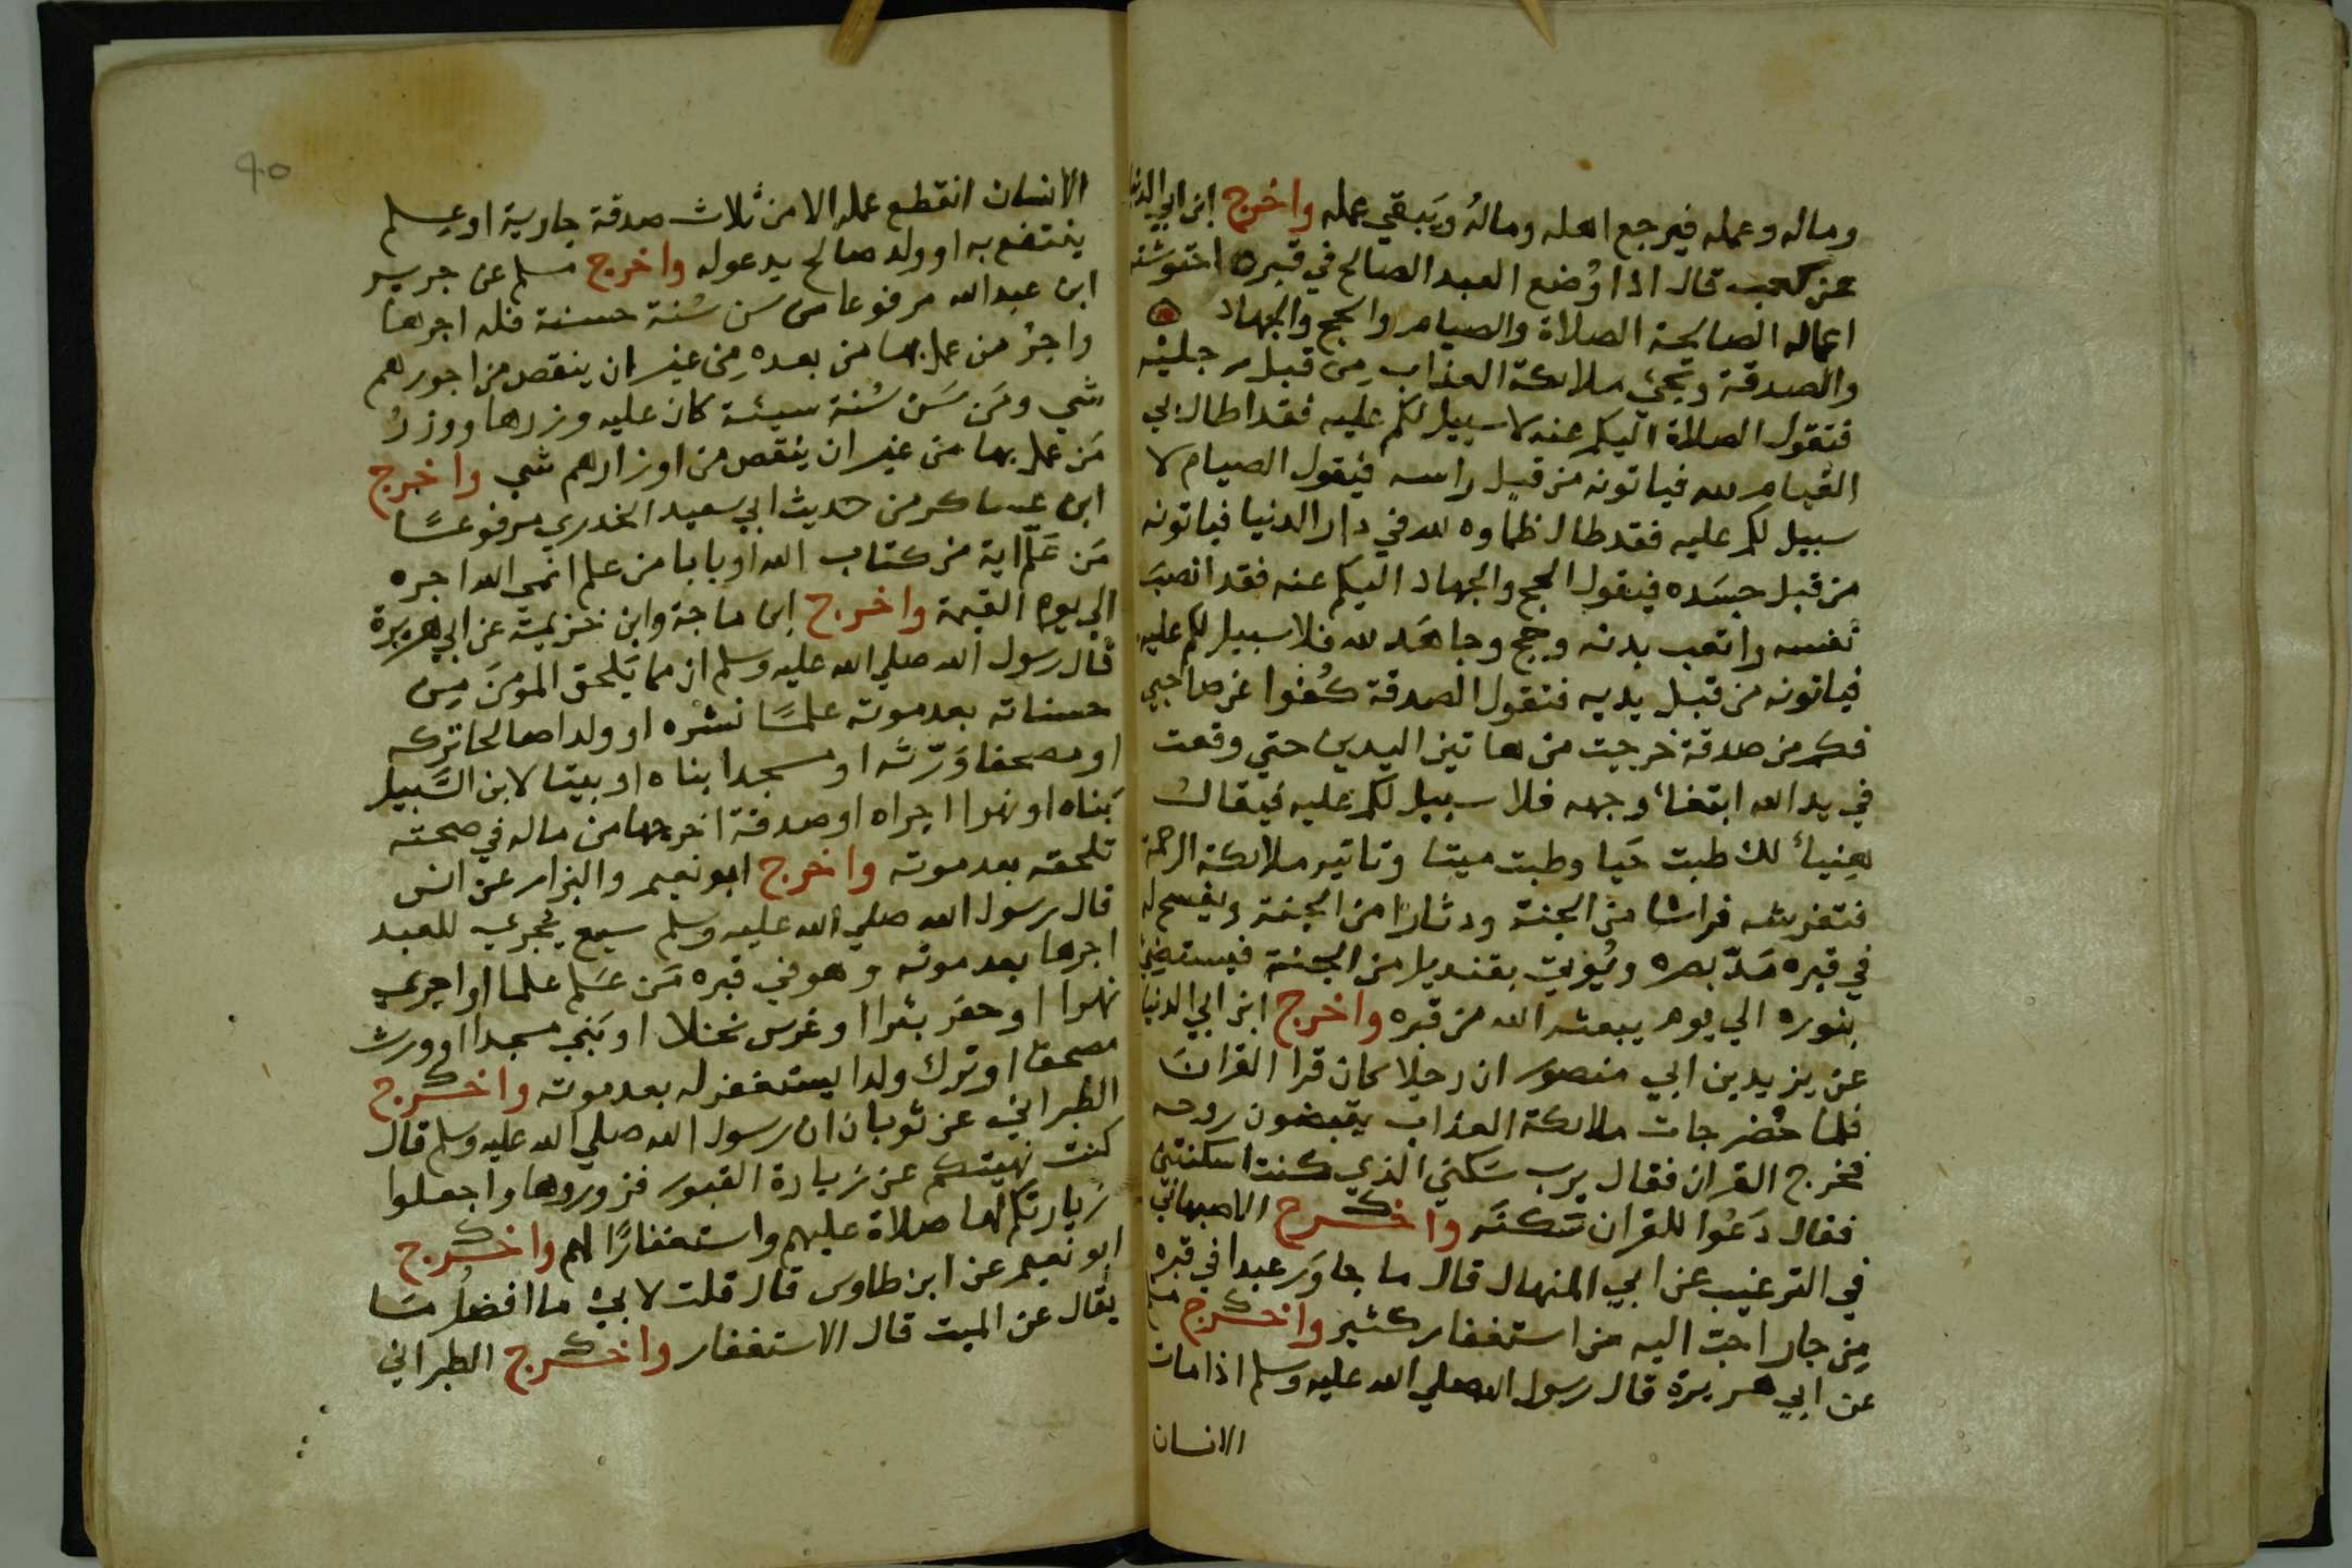 وماله وعمله فيرجع اهله ومالهُ ويَبقي عمله واخرج ابن ابي الدنيا
عن كعب قال اذا وُضع العبد الصالح في قبره احتوشته
اعماله الصالحة الصلاة والصيام والحج والجهاد
والصدقة وتجئ ملايكة العذاب مِن قبل رجليه
فتقول الصلاة اليكم عنه لا سبيل لكم عليه فقد اطال بي
القيام لله فياتونه من قبل راسه فيقول الصيام لا
سبيل لكم عليه فقد طال ظماوه لله في دار الدنيا فياتونه
من قبل جسَده فيقول الحج والجهاد اليكم عنه فقد انصبَ
نفسه واتعب بدنه وحج وجاهَد لله فلا سبيل لكم عليه
فياتونه من قبل يديه فتقول الصدقة كُفوا عن صاحبي
فكم من صدقة خرجت من هاتين اليدين حتي وقعت
في يد الله ابتغاء وجهه فلا سبيل لكم عليه فيقال
هنيأ لك طبت حَيا وطبت ميتا وتاتيه ملايكة الرحمة
فتفرشه فراشا من الجنة ودثارا من الجنة ويفسح له
في قبره مَدّ بصره ويُوتي بقنديل من الجنة فيستضئ
بنوره الي يوم يبعثه الله من قبره واخرج ابن ابي الدنيا
عن يزيد بن ابي منصور ان رجلا كان قرا القرانَ
فلما حُضر جات ملايكة العذاب يقبضون روحه
فخرج القران فقال يرب سَكني الذي كنت اسكنتني
فقال دَعُوا للقران سَكنَه واخرج الاصبهاني
في الترغيب عن ابي المنهال قال ما جاوَر عبدا في قبره
مِن جار احب اليه من استغفار كثير واخرج مسلم
عن ابي هريرة قال رسول الله صلي الله عليه وسلم اذا مات
الانسان
40
الانسان انقطع عمله الا من ثلاث صدقة جارية او علم
ينتفع به او ولد صالح يدعو له واخرج مسلم عن جرير
ابن عبد الله مرفوعا من سن سُنة حسنة فله اجرها
واجرُ من عمل بها من بعده مِن غير ان ينقص من اجورهم
شي ومَن سَن سُنة سيئة كان عليه وزرها ووزرُ
مَن عمل بها من غير ان ينقص من اوزارهم شي واخرج
ابن عساكر من حديث ابي سعيد الخدري مرفوعًا
مَن عَلّم اية من كتاب الله او بابا من علم انمي الله اجره
الي يوم القيمة واخرج ابن ماجة وابن خزيمة عن ابي هريرة
قال رسول الله صلي الله عليه وسلم ان مما يَلحق المومنَ مِن
حسناته بعد موته علمًا نشره او ولدا صالحا تركه
او مصحفا وَرّثه او مسجدا بناه او بيتا لابن السَّبيل
بَناه او نهرا اجراه او صدقة اخرجها من ماله في صحته
تلحقه بعد موته واخرج ابو نعيم والبزار عن انس
قال رسول الله صلي الله عليه وسلم سبع يُجري للعبد
اجرها بعد موته وهو في قبره مَن عَلم علما او اجري
نهرا او حفر بئرا او غرس نخلا او بَني مسجدا او ورث
مصحفا او ترك ولدا يستغفر له بعد موته واخرج
الطبراني عن ثوبان ان رسول الله صلي الله عليه وسلم قال
كنت نهيتكم عن زيارة القبور فزوروها واجعلوا
زيارتكم لها صلاة عليهم واستغفارًا لهم واخرج
ابو نعيم عن ابن طاوس قال قلت لابي ما افضل مَا
يقال عن الميت قال الاستغفار واخرج الطبراني